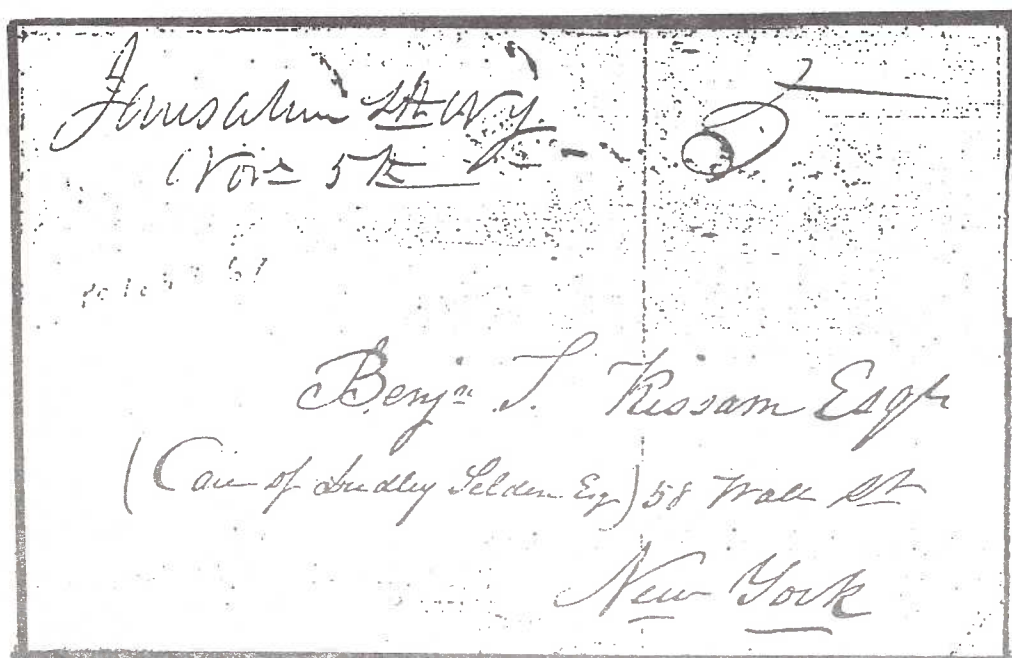 Jerusalem Sth NY.
Novr 5th
Benjn T. Kissam Esqr
(Care of Dudley Selden Esq) 58 Wall St
New York